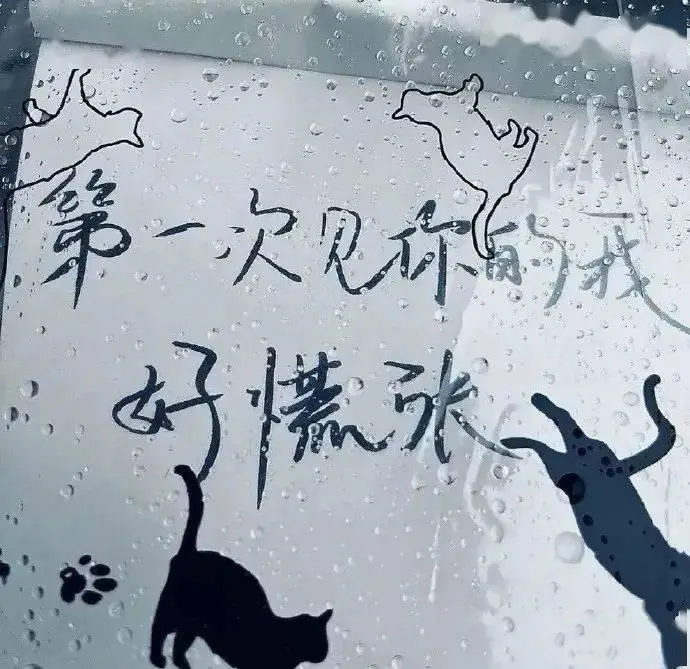 第一次见你的我
好慌张